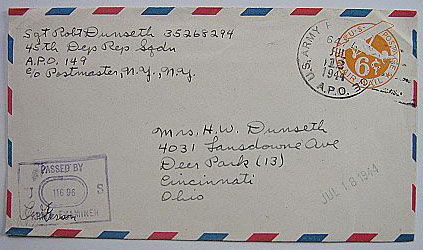 Sgt Robt Dunseth 35268294
45th Dep Rep Sqdn
A.P.O. 149
c/o Postmaster, N.Y., N.Y.
U.S. ARMY
JUL
12
1944
A.P.O.
U.S. POSTAGE
6¢
AIR MAIL
Mrs. H.W. Dunseth
4031 Lansdowne Ave
Deer Park (13)
Cincinnati
Ohio
JUL 18 1944
PASSED BY
U S
11696
ARMY EXAMINER